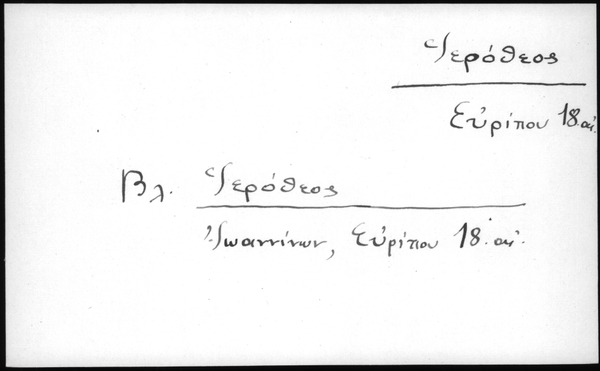 Ἱερόθεος
Εὐρίπου 18. αἰ.
Βλ. Ἱερόθεος
Ἰωαννίνων, Εὐρίπου 18. αἰ.